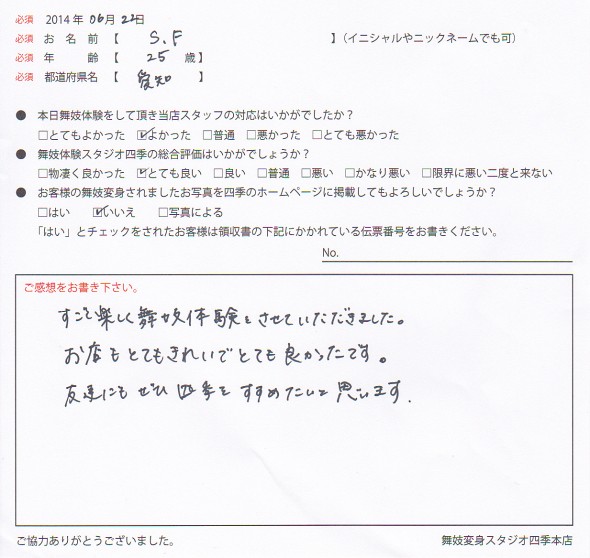 必須 2014年 06月 22日
必須 お名前【 S.F 】(イニシャルやニックネームでも可)
必須 年齢【 25 歳】
必須 都道府県名【 愛知 】
● 本日舞妓体験をして頂き当店スタッフの対応はいかがでしたか?
□とてもよかった ☑よかった □普通 □悪かった □とても悪かった
● 舞妓体験スタジオ四季の総合評価はいかがでしょうか?
□物凄く良かった ☑とても良い □良い □普通 □悪い □かなり悪い □限界に悪い二度と来ない
● お客様の舞妓変身されましたお写真を四季のホームページに掲載してもよろしいでしょうか?
□はい ☑いいえ □写真による
「はい」とチェックをされたお客様は領収書の下記にかかれている伝票番号をお書きください。
No.
ご感想をお書き下さい。
すごく楽しく舞妓体験をさせていただきました。
お店もとてもきれいでとても良かったです。
友達にもぜひ四季をすすめたいと思います.
ご協力ありがとうございました。
舞妓変身スタジオ四季本店